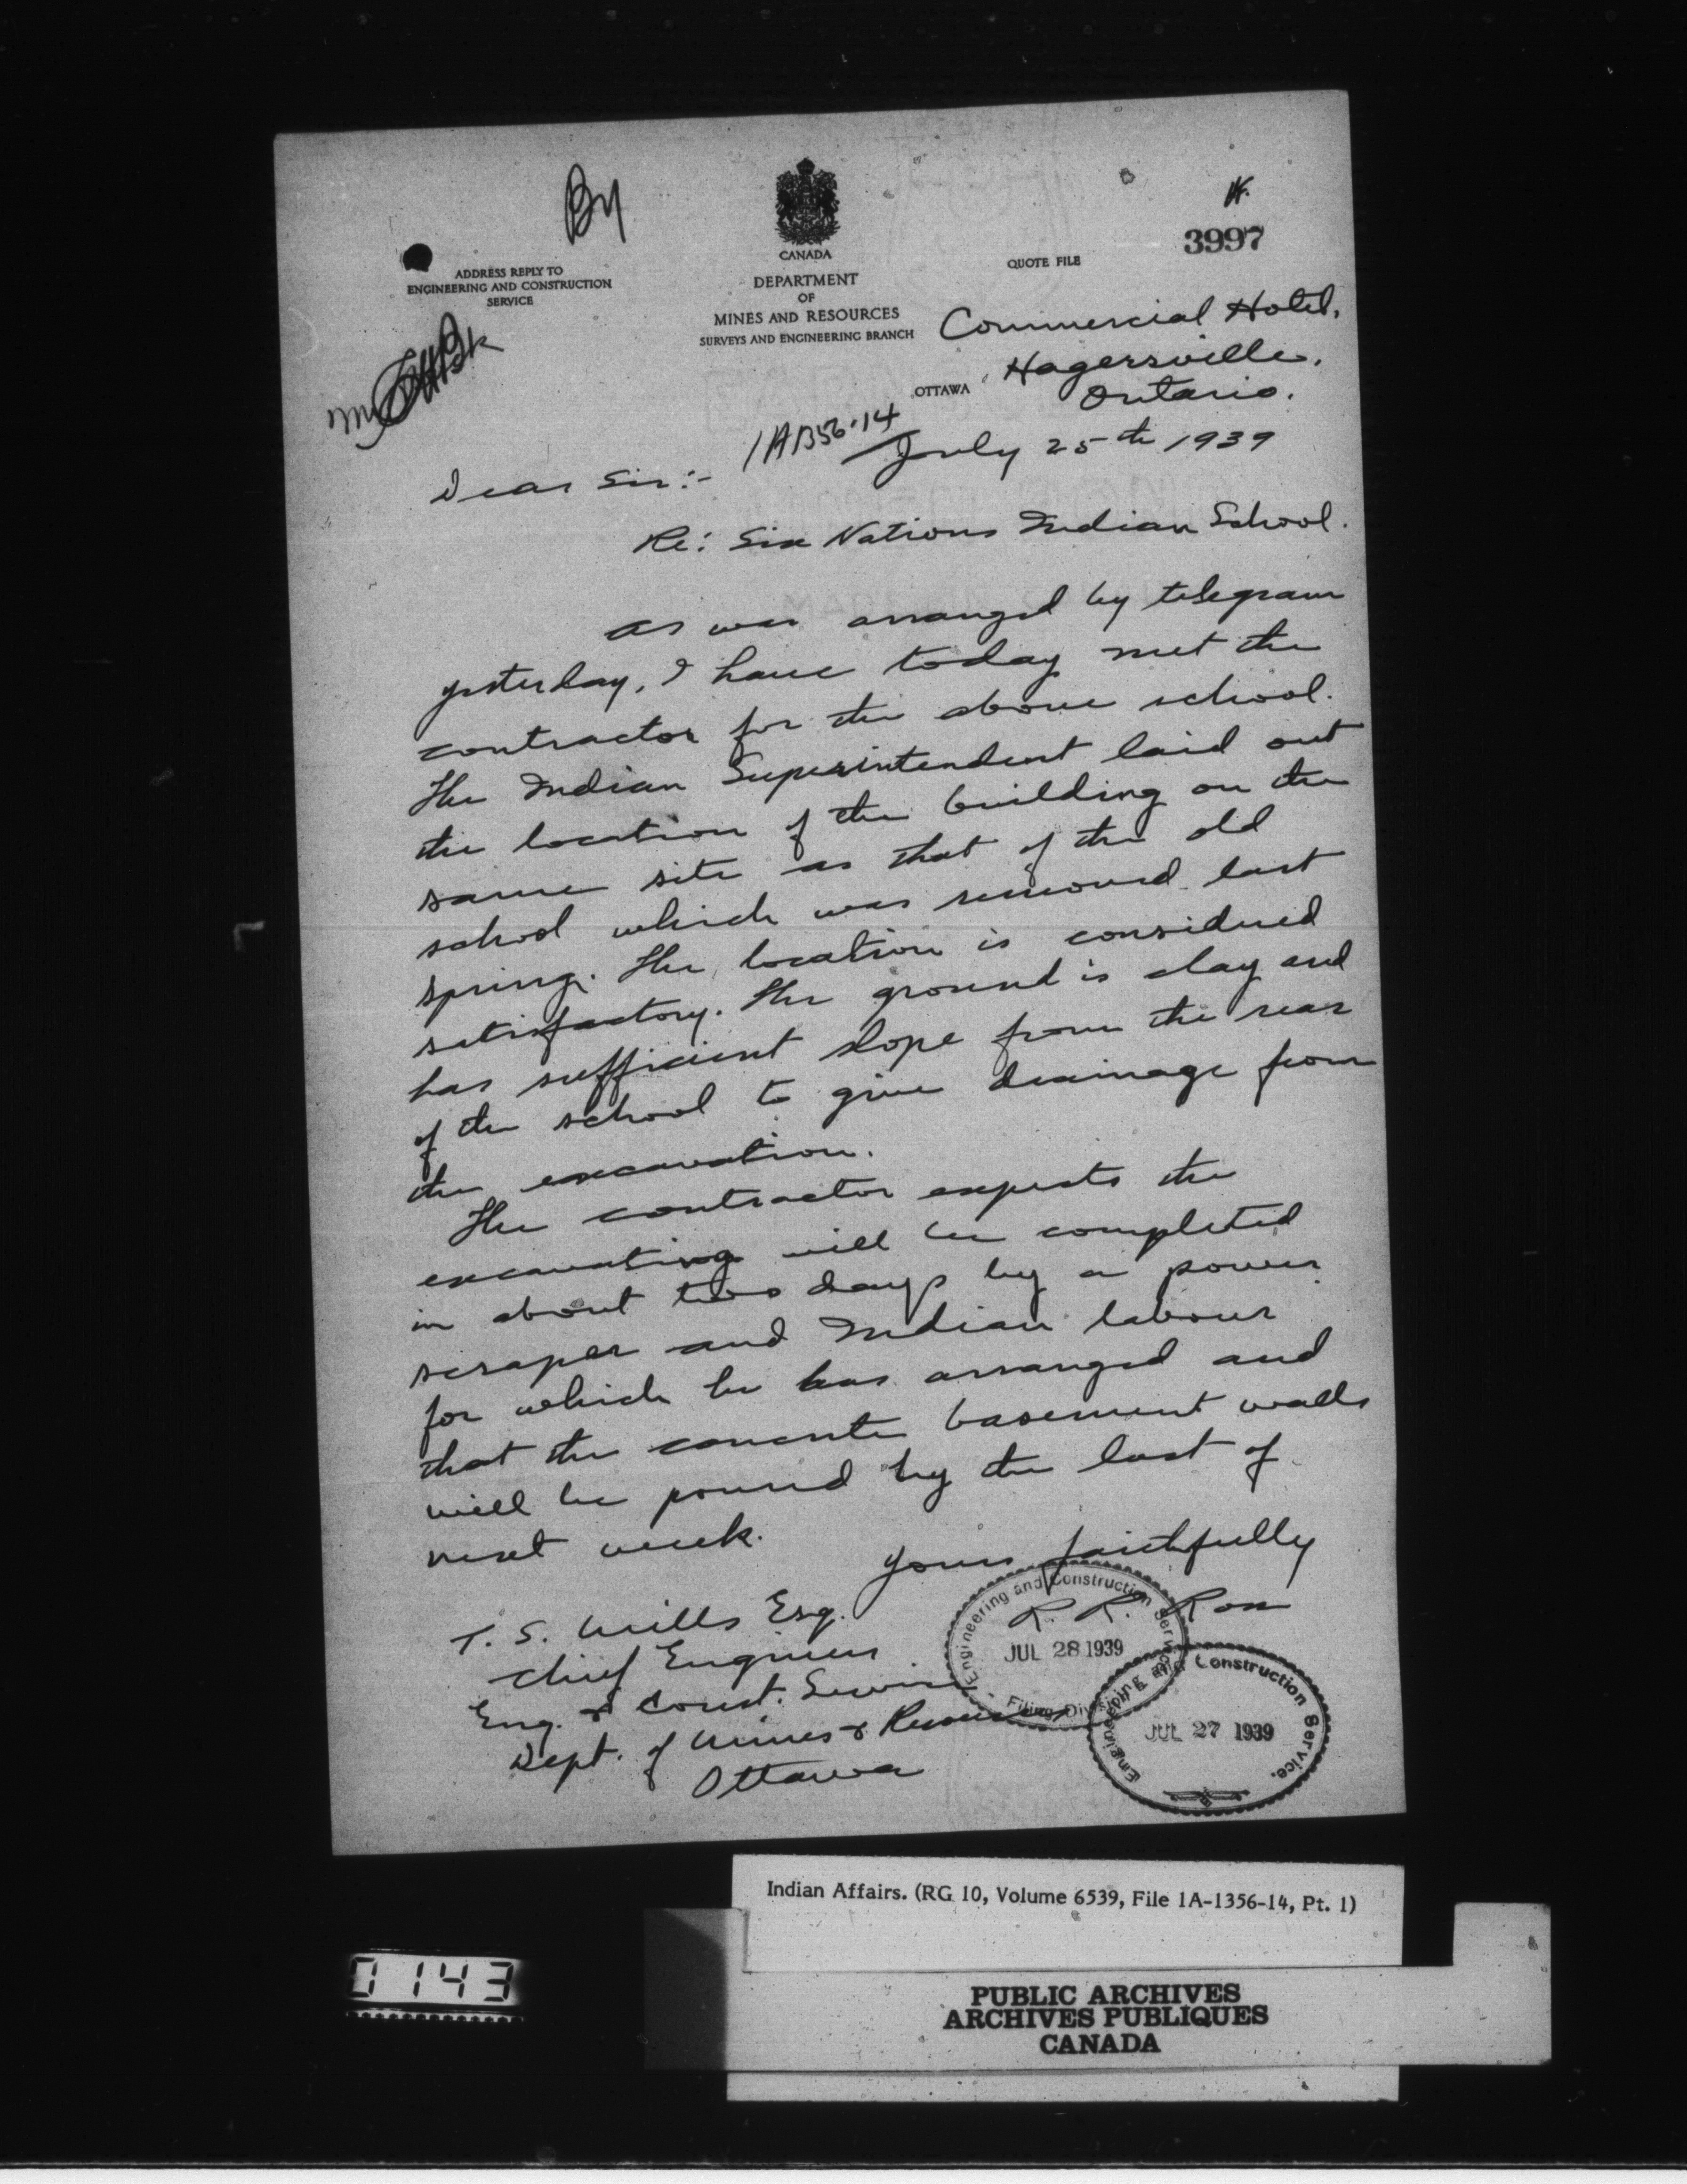 By
W.
3997
CANADA
ADDRESS REPLY TO
ENGINEERING AND CONSTRUCTION
SERVICE
DEPARTMENT
OF
MINES AND RESOURCES
SURVEYS AND ENGINEERING BRANCH
QUOTE FILE
Commercial Hotel,
OTTAWA
Hagersville,
Ontario.
1A1356-14
July 25th 1939
Dear Sir:-
Re: Six Nations Indian School.
As was arranged by telegram
yesterday, I have today met the
contractor for the above school.
The Indian Superintendent laid out
the location of the building on the
same site as that of the old
school which was removed last
spring. The location is considered
satisfactory. The ground is clay and
has sufficient slope from the rear
of the school to give drainage from
the excavation.
The contractor expects the
excavating will be completed
in about two days by a power
scraper and Indian labour
for which he has arranged and
that the concrete basement walls
will be poured by the last of
next week.
Yours faithfully
R. R. Ross
T. S. Mills Esq.
Chief Engineer
Eng. & Const. Service
Dept. of Mines & Resources
Ottawa
Engineering and Construction Service
JUL 28 1939
Filing Division
Engineering and Construction Service.
JUL 27 1939
Indian Affairs. (RG 10, Volume 6539, File 1A-1356-14, Pt. 1)
0143
PUBLIC ARCHIVES
ARCHIVES PUBLIQUES
CANADA